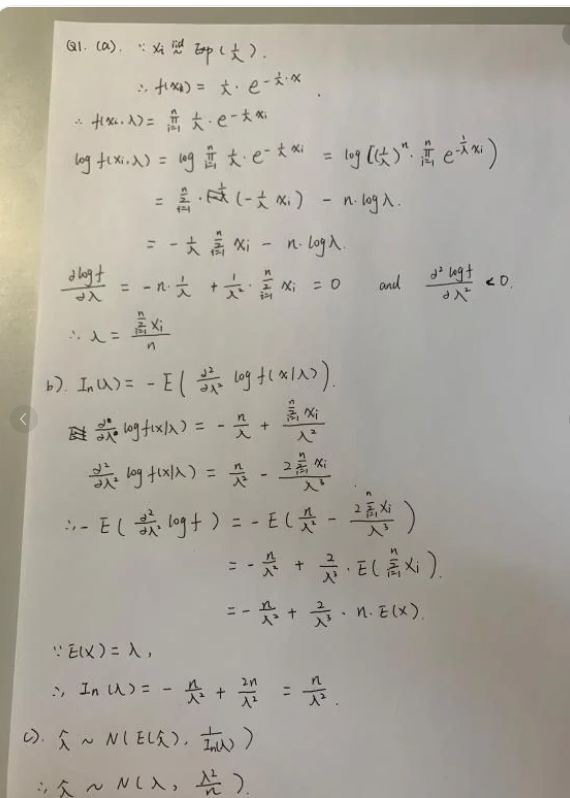 Q1. (a). ∵ Xi iid~ Exp(1/λ).
∴ f(xi) = 1/λ · e^{-1/λ·x}.
∴ f(xi,λ) = ∏_{i=1}^{n} 1/λ · e^{-1/λ xi}
log f(xi,λ) = log ∏_{i=1}^{n} 1/λ · e^{-1/λ xi} = log[(1/λ)^n · ∏_{i=1}^{n} e^{-1/λ xi})
= Σ_{i=1}^{n} · (-1/λ xi) - n·logλ.
= -1/λ Σ_{i=1}^{n} xi - n·logλ.
∂logf/∂λ = -n·1/λ + 1/λ² · Σ_{i=1}^{n} xi = 0 and ∂²logf/∂λ² < 0.
∴ λ = Σ_{i=1}^{n} Xi / n
b). In(λ) = -E(∂²/∂λ² log f(x|λ)).
log f(x|λ) = -n/λ + Σ_{i=1}^{n} Xi / λ²
∂²/∂λ² log f(x|λ) = n/λ² - 2Σ_{i=1}^{n} Xi / λ³
∴ -E(∂²/∂λ² logf) = -E(n/λ² - 2Σ_{i=1}^{n} Xi / λ³)
= -n/λ² + 2/λ³ · E(Σ_{i=1}^{n} Xi).
= -n/λ² + 2/λ³ · n·E(x).
∵ E(X) = λ,
∴ In(λ) = -n/λ² + 2n/λ² = n/λ².
c). λ̂ ~ N(E(λ̂), 1/In(λ))
∴ λ̂ ~ N(λ, λ²/n).